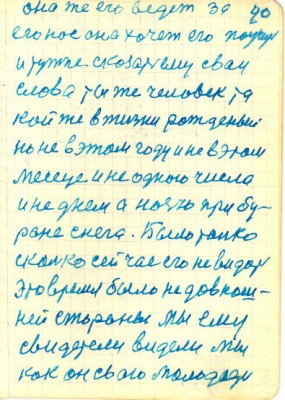 она же его ведет за 40
его нос она хочет его
и тут же сказат ему сваи
слова ты же человек та
кой же в жизни рожденый
но не в этом году и не в этом
месеце и не одного числа
и не днем а ночю при бу-
ране снега. Было только
сколко сейчас его не видат
Это время было не довнош-
ней стораны мы ему
свидетели видели мы
как он сваго молодади